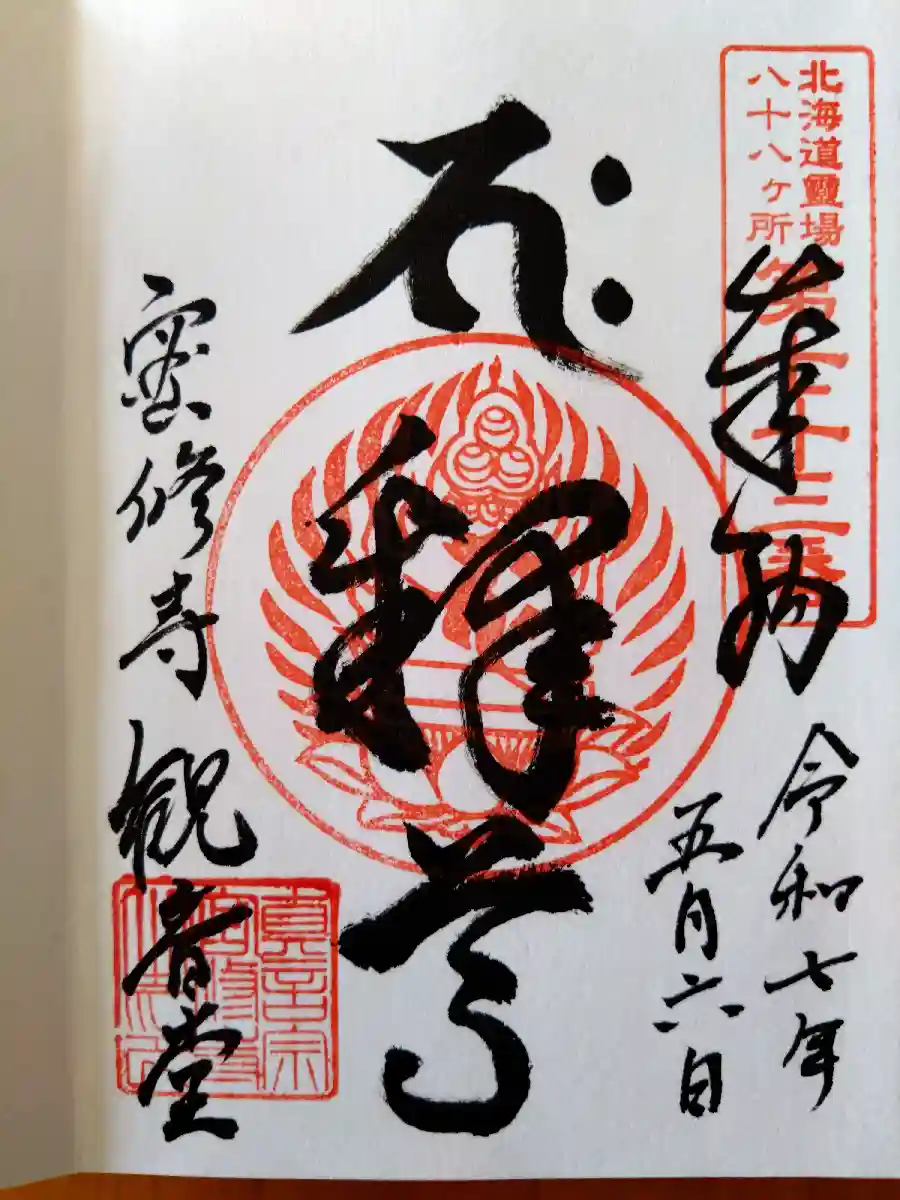 北海道靈場
八十八ヶ所
奉納
令和七年
五月六日
釋尊
密修寺 観音堂
真言宗